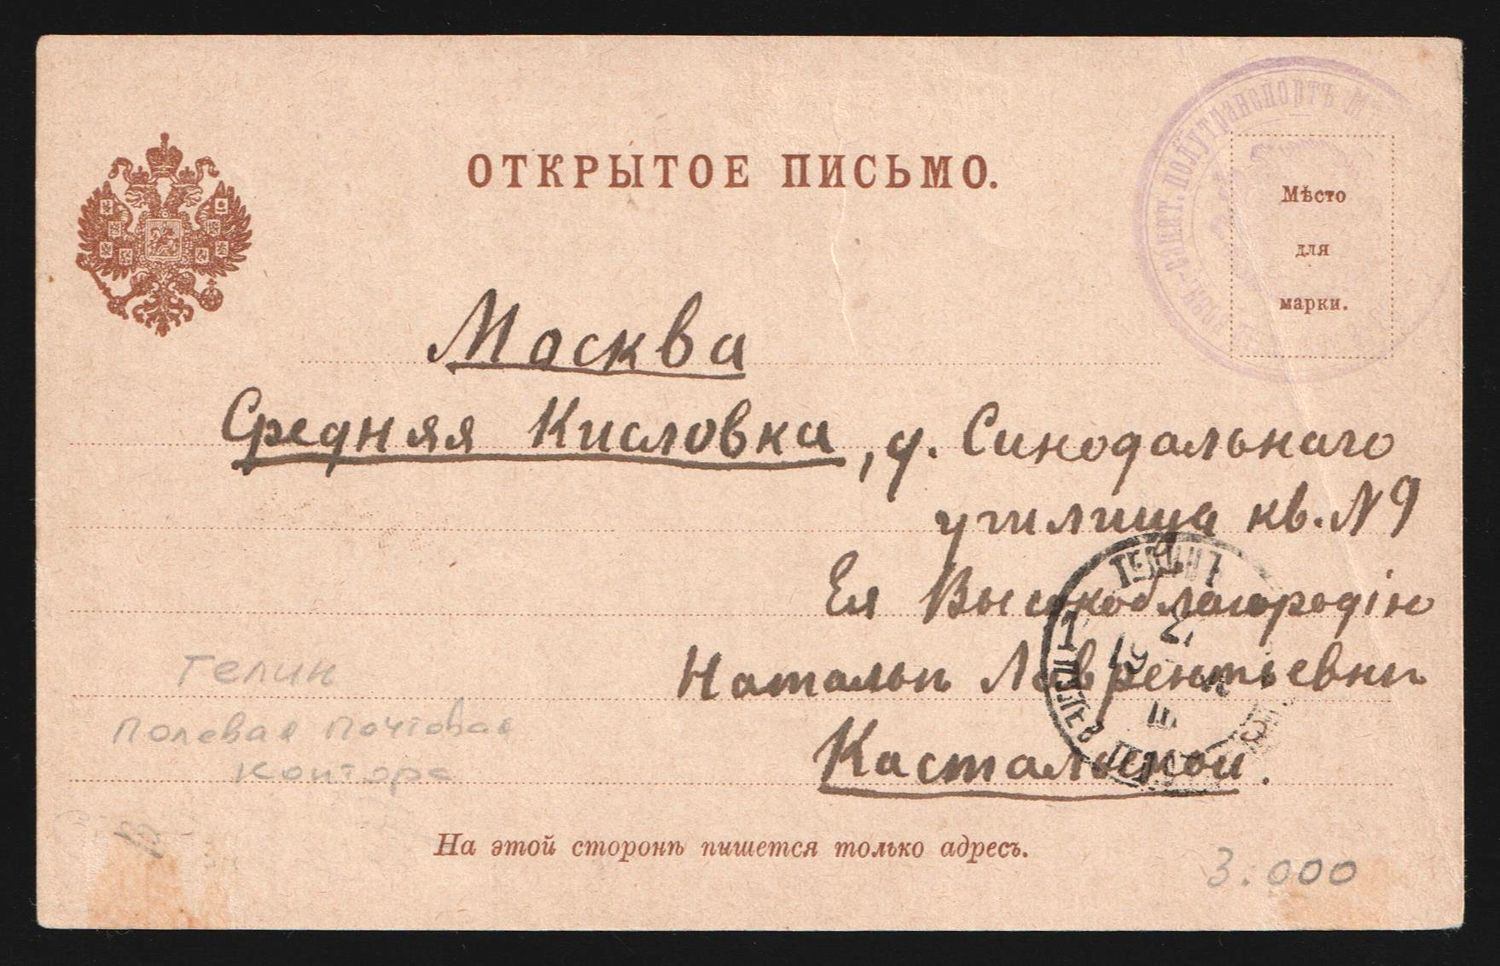 ОТКРЫТОЕ ПИСЬМО.
САНИТ. ПОЛУТРАНСПОРТЪ
Мѣсто
для
марки.
Москва
Средняя Кисловка, д. Синодальнаго
училища кв. N 9
Ея Высокоблагородію
Натальѣ Лаврентьевнѣ
Кастальской.
Телин
полевая почтовая
контора
На этой сторонѣ пишется только адресъ.
3.000